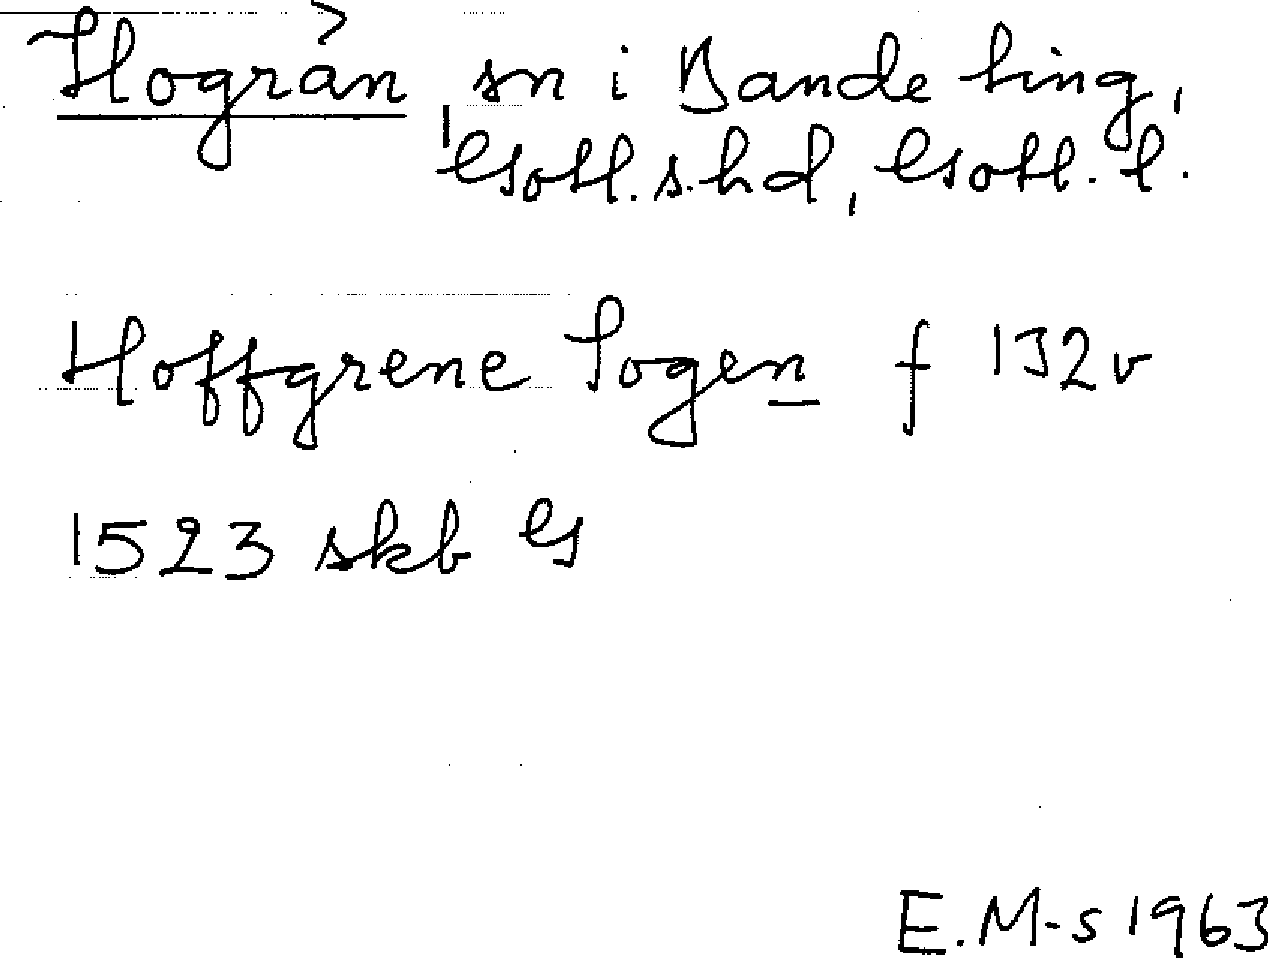 Hogrän sn i Bande ting,
Gotl. s. hd, Gotl. l.
Hoffgrene Sogen f 132v
1523 skb G
E. M-s 1963